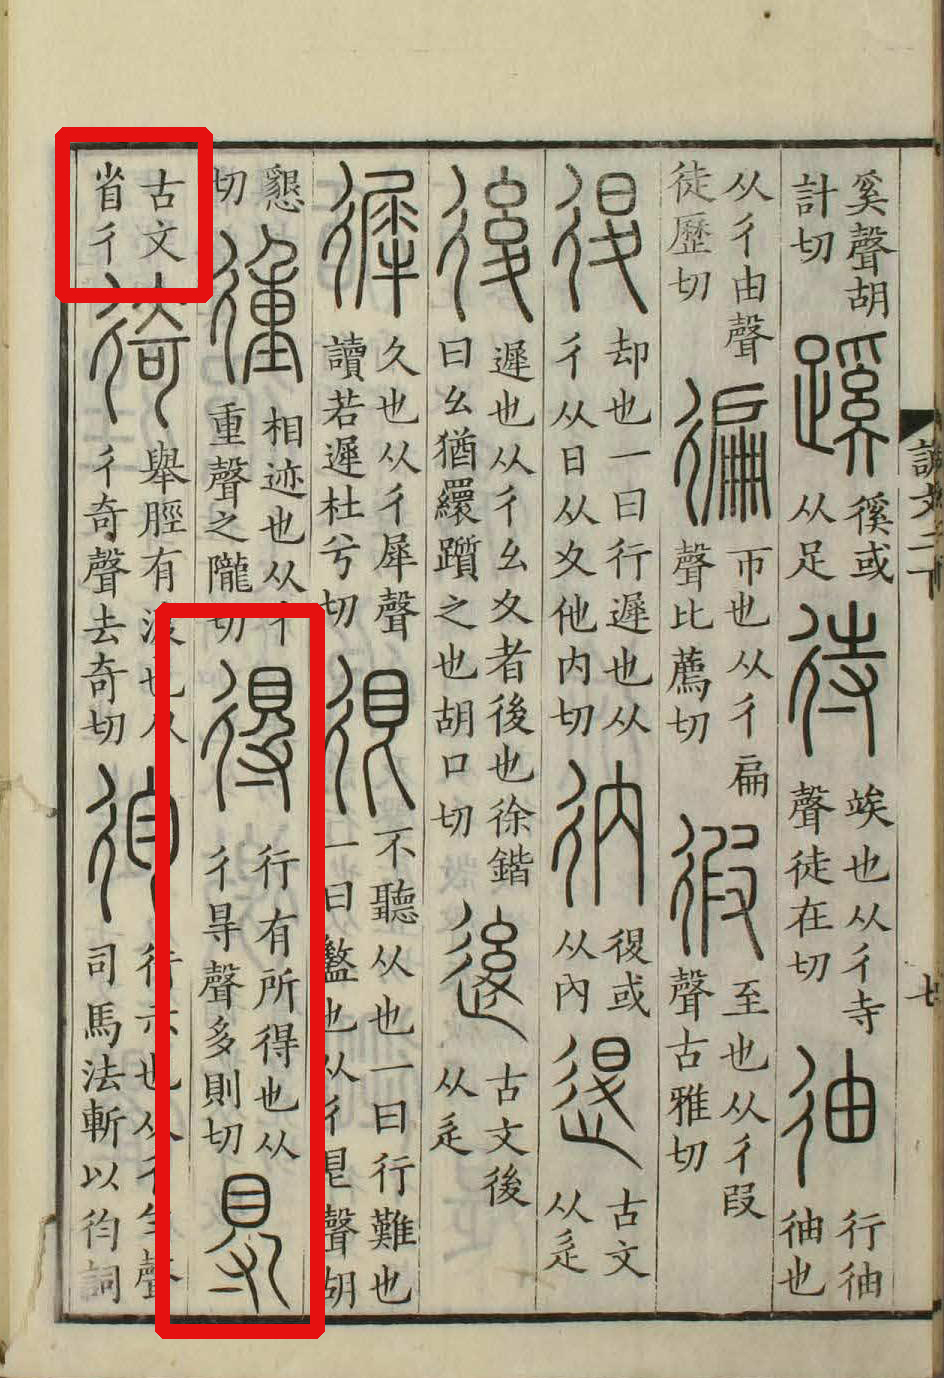 說文二下 七
奚聲胡計切 蹊 徯或从足 待 竢也从彳寺聲徒在切 㣙 行㣙㣙也
从彳由聲徒歷切 徧 帀也从彳扁聲比薦切 徦 至也从彳叚聲古雅切
𢓴 却也一曰行遲也从彳从日从夊他內切 㣕 𢓴或从內 𨓤 古文从辵
後 遲也从彳幺夊者後也徐鍇曰幺猶繯躓之也胡口切 𨒥 古文後从辵
徲 久也从彳犀聲讀若遲杜兮切 很 不聽从也一曰行難也一曰盭也从彳𥃩聲胡
懇切 㣫 相迹也从彳重聲之隴切 得 行有所得也从彳㝵聲多則切 㝵
古文省彳 徛 舉脛有渡也从彳奇聲去奇切 㣘 行示也从彳勻聲司馬法斬以㣘詞